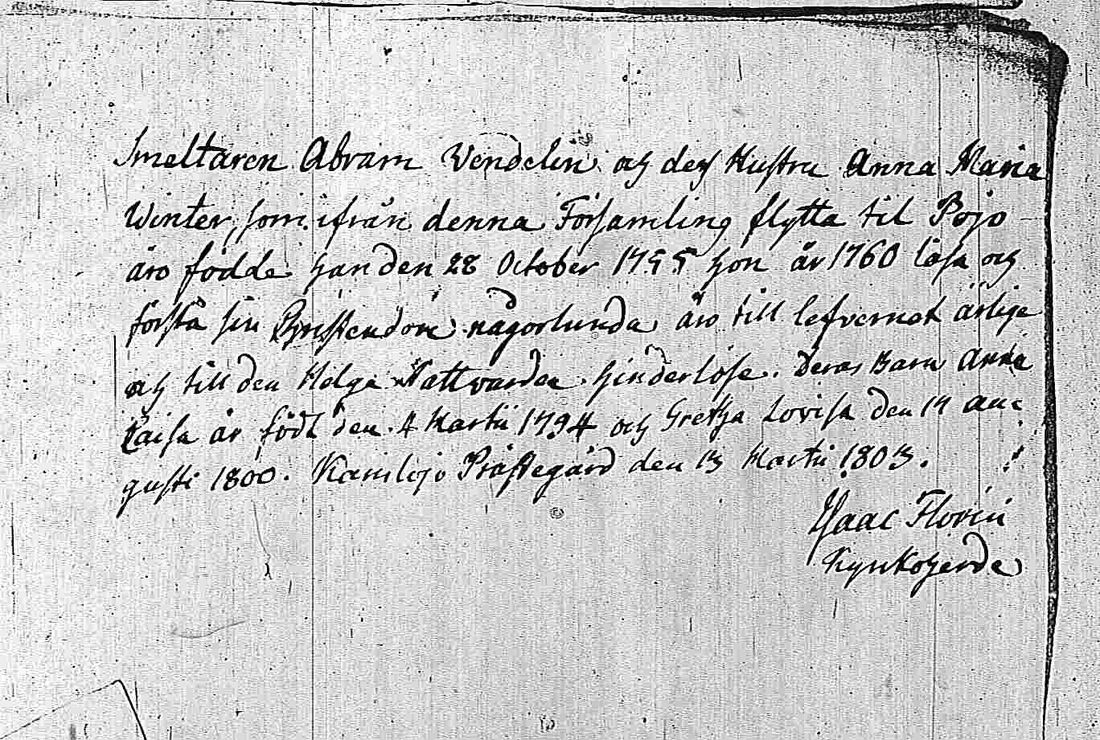 Smeltaren Abram Vendelin och dess Hustru Anna Maria
Winter, som ifrån denna Församling flytta til Pojo
äro födde han den 28 October 1755 hon år 1760 läsa och
förstå sin Christendom någorlunda äro till lefvernet ärlige
och till den Helga Nattwarden hinderlöse. Deras Barn Anna
Caisa är född den 4 Martii 1794 och Gretha Lovisa den 19 au=
gusti 1800. Karislojo Prästegård den 13 Martii 1803.
Isaac Florin
Kyrkoherde